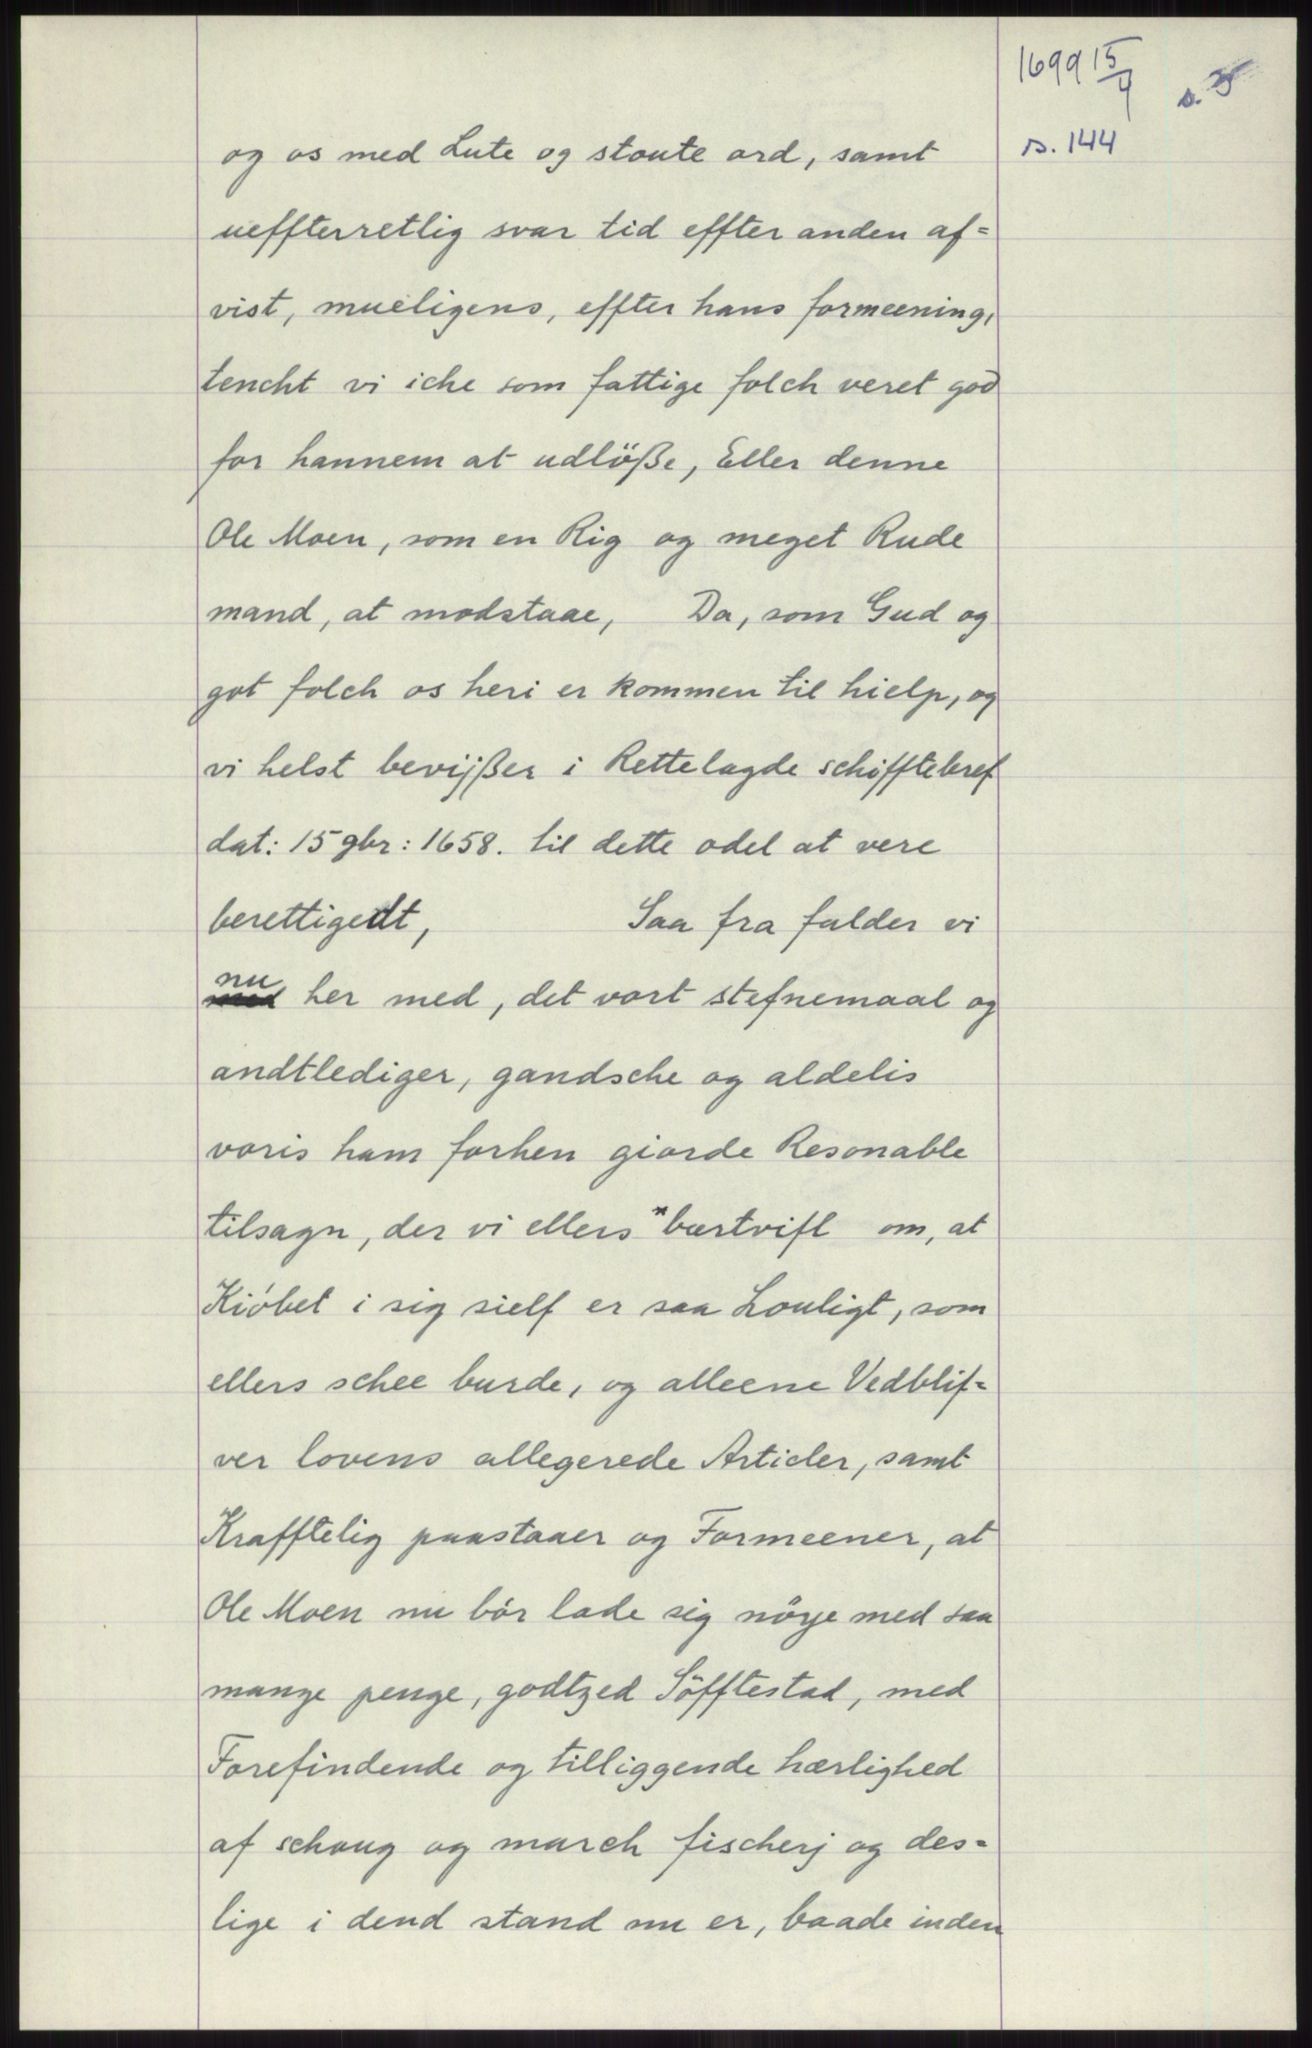 1699 15/9 s. 5
s. 144
og os med Lute og stoute ord, samt
ueffterretlig svar tid effter anden af=
vist, mueligens, effter hans formeening,
tencht vi iche som fattige folch veret god
for hannem at udlöße, Eller denne
Ole Moen, som en Rig og meget Rude
mand, at modstaae, Da, som Gud og
got folch os heri er kommen til hielp, og
vi helst bevijßer i Rettelagde schifftebref
dat: 15 gbr: 1658. til dette odel at vere
berettigedt, Saa fra falder vi
nu her med, det vort stefnemaal og
andtlediger, gandsche og aldelis
voris ham forhen giorde Resonable
tilsagn, der vi ellers *bærtvifl om, at
Kiöbet i sig sielf er saa Louligt, som
ellers schee burde, og alleene Vedblif=
ver lovens allegerede Articler, samt
Krafftelig paastaaer og Formeener, at
Ole Moen nu bör lade sig nöye med saa
mange penge, godtzed Söfftestad, med
Forefindende og tilliggende hærlighed
af schoug og march fischerj og des=
lige i dend stand nu er, baade inden